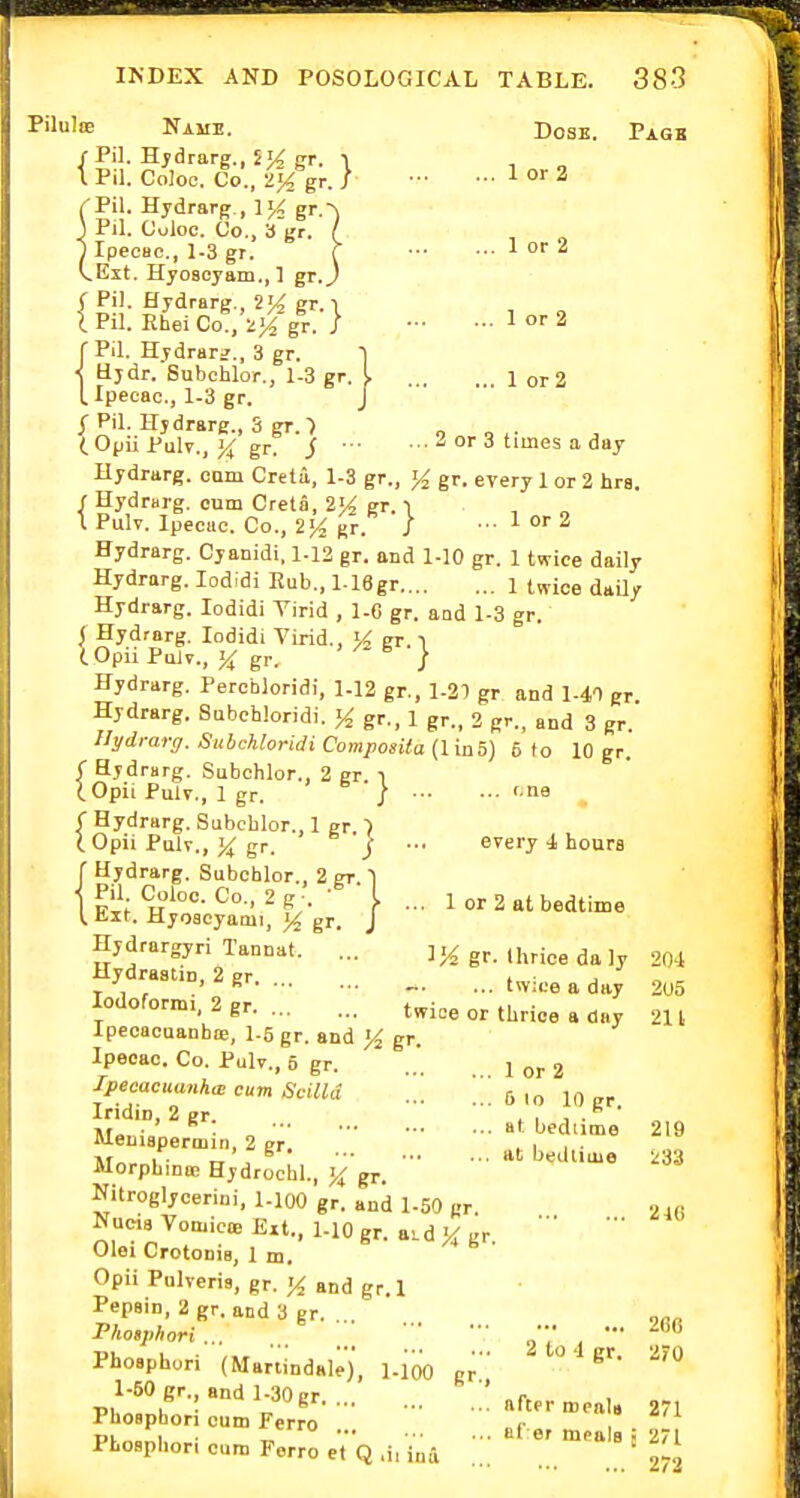 INDEX AND POSOLOGICAL TABLE. 383
Pilulæ NAME. DOSE. PAGE
{ Pil. Hydrarg., 2½ gr. }
{ Pil. Coloc. Co., 2½ gr. } ... ... 1 or 2
{ Pil. Hydrarg., 1½ gr. }
{ Pil. Coloc. Co., 3 gr. }
{ Ipecac., 1-3 gr. } ... ... 1 or 2
{ Ext. Hyoscyam., 1 gr. }
{ Pil. Hydrarg., 2½ gr. }
{ Pil. Rhei Co., 2½ gr. } ... ... 1 or 2
{ Pil. Hydrarg., 3 gr. }
{ Hydr. Subchlor., 1-3 gr. } ... ... 1 or 2
{ Ipecac., 1-3 gr. }
{ Pil. Hydrarg., 3 gr. }
{ Opii Pulv., ¼ gr. } ... ... 2 or 3 times a day
Hydrarg. cum Cretâ, 1-3 gr., ½ gr. every 1 or 2 hrs.
{ Hydrarg. cum Cretâ, 2½ gr. }
{ Pulv. Ipecac. Co., 2½ gr. } ... 1 or 2
Hydrarg. Cyanidi, 1-12 gr. and 1-10 gr. 1 twice daily
Hydrarg. Iodidi Rub., 1-16gr.... ... 1 twice daily
Hydrarg. Iodidi Virid , 1-6 gr. and 1-3 gr.
{ Hydrarg. Iodidi Virid., ½ gr. }
{ Opii Pulv., ¼ gr. }
Hydrarg. Perchloridi, 1-12 gr., 1-20 gr and 1-40 gr.
Hydrarg. Subchloridi. ½ gr., 1 gr., 2 gr., and 3 gr.
Hydrarg. Subchloridi Composita (1 in 5) 5 to 10 gr.
{ Hydrarg. Subchlor., 2 gr. }
{ Opii Pulv., 1 gr. } ... ... one
{ Hydrarg. Subchlor., 1 gr. }
{ Opii Pulv., ¼ gr. } ... every 4 hours
{ Hydrarg. Subchlor., 2 gr. }
{ Pil. Coloc. Co., 2 gr. } ... 1 or 2 at bedtime
{ Ext. Hyoscyami, ½ gr. }
Hydrargyri Tannat. ... 1½ gr. thrice da ly 204
Hydrastin, 2 gr. ... ... ... ... twice a day 205
Iodoformi, 2 gr. ... ... twice or thrice a day 211
Ipecacuanhæ, 1-5 gr. and ½ gr.
Ipecac. Co. Pulv., 5 gr. ... ... 1 or 2
Ipecacuanhæ cum Scillâ ... ... 5 to 10 gr.
Iridin, 2 gr. ... ... ... ... at bedtime 219
Menispermin, 2 gr. ... ... ... at bedtime 233
Morphinæ Hydrochl., ¼ gr.
Nitroglycerini, 1-100 gr. and 1-50 gr. ... ... 246
Nucis Vomicæ Ext., 1-10 gr. and ¼ gr.
Olei Crotonis, 1 m.
Opii Pulveris, gr. ½ and gr. 1
Pepsin, 2 gr. and 3 gr. ... ... ... ... ... 266
Phosphori ... ... ... ... ... 2 to 4 gr. 270
Phosphori (Martindale), 1-100 gr.,
1-50 gr., and 1-30 gr. ... ... ... after meals 271
Phosphori cum Ferro ... ... ... af er meals ; 271
Phosphori cum Ferro et Q .ii inâ ... ... ... 272